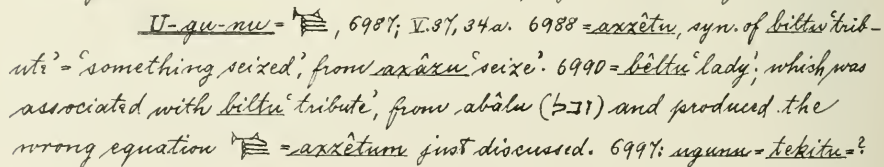 U-gu-nu = , 6987; V.37, 34a. 6988 = axxêtu, syn. of biltu ‘trib-
ute’ = ‘something seized’, from axâzu ‘seize’. 6990 = bêltu ‘lady’; which was
associated with biltu ‘tribute’, from abâlu (ובל) and produced the
wrong equation = axxêtum just discussed. 6997: ugunu = tekitu = ?